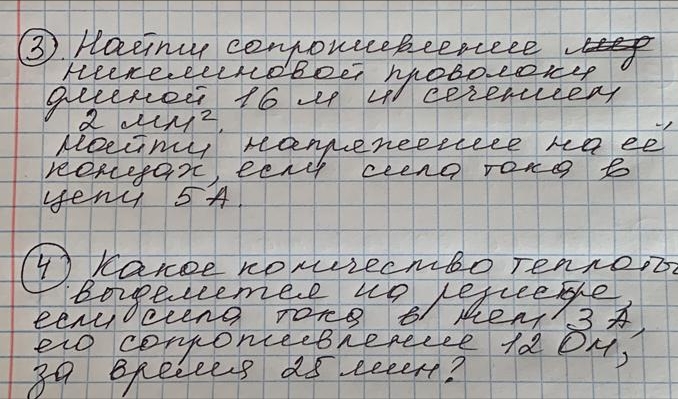 ③. Найти сопротивление
никелиновой проволоки
длиной 16 м и сечением
2 мм².
Найти напряжение на её
концах, если сила тока в
цепи 5 А.
④ Какое количество теплоты
выделится на резисторе,
если сила тока в нем 3 А,
его сопротивление 12 Ом,
за время 25 мин?